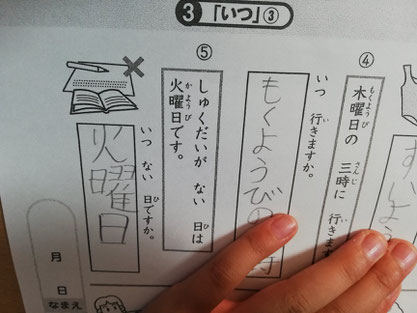 3 「いつ」③
④
木曜日の 三時に 行き
もくようび さんじ い
いつ 行きますか。
い
もくようびの
⑤
しゅくだいが ない 日は
ひ
火曜日です。
かようび
いつ ない 日ですか。
ひ
火曜日
月 日
なまえ